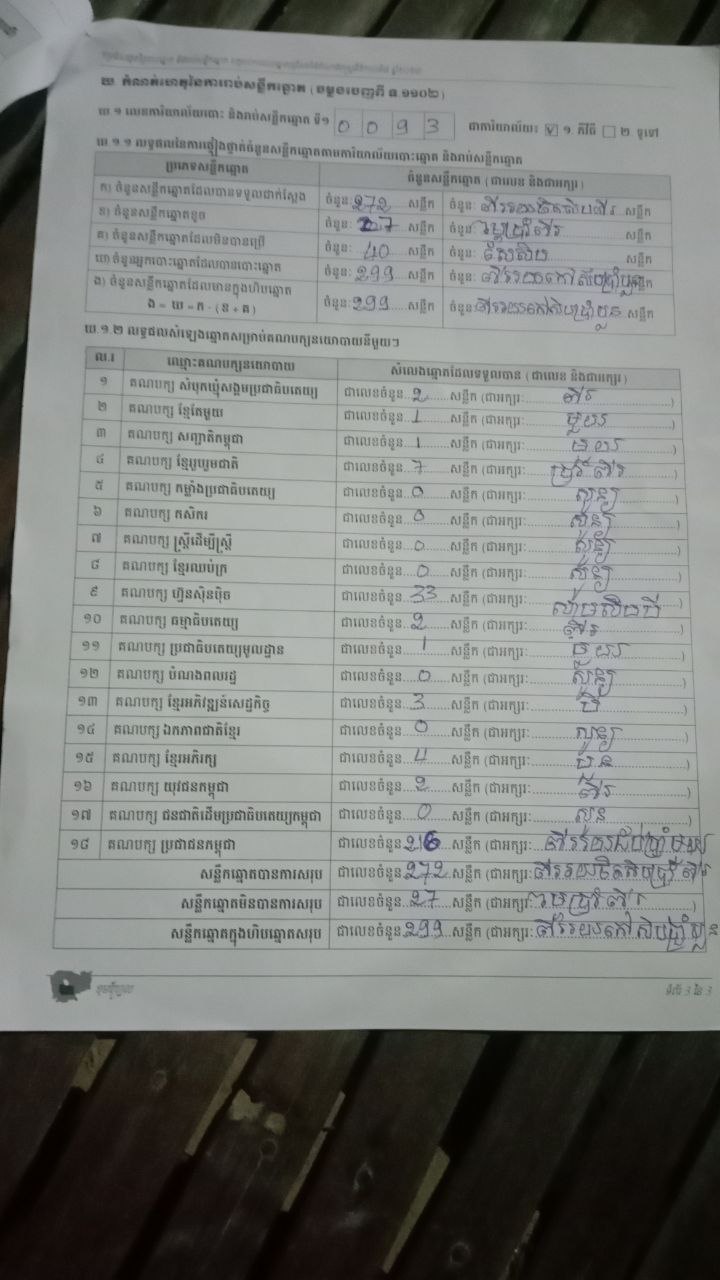 ឃ. កំណត់ហេតុនៃការរាប់សន្លឹកឆ្នោត (ចម្លងចេញពី ឆ.១១០២)
ឃ.១ លេខការិយាល័យបោះ និងរាប់សន្លឹកឆ្នោត ទី១ 0 0 9 3 ជាការិយាល័យ៖ ១. ភីវិធី ២. ទូទៅ
ឃ.១.១ លទ្ធផលនៃការផ្ទៀងផ្ទាត់ចំនួនសន្លឹកឆ្នោតតាមការិយាល័យបោះឆ្នោត និងរាប់សន្លឹកឆ្នោត
ប្រភេទសន្លឹកឆ្នោត ចំនួនសន្លឹកឆ្នោត (ជាលេខ និងជាអក្សរ)
ក) ចំនួនសន្លឹកឆ្នោតដែលបានទទួលដាក់ស្តែង ចំនួន: 272 សន្លឹក ចំនួន: សន្លឹក
ខ) ចំនួនសន្លឹកឆ្នោតខូច ចំនួន: 27 សន្លឹក ចំនួន: ម្ភៃប្រាំពីរ សន្លឹក
គ) ចំនួនសន្លឹកឆ្នោតដែលមិនបានប្រើ ចំនួន: 40 សន្លឹក ចំនួន: សែសិប សន្លឹក
ឃ) ចំនួនអ្នកបោះឆ្នោតដែលបានបោះឆ្នោត ចំនួន: 299 សន្លឹក ចំនួន: ពីររយកៅសិបប្រាំបួន សន្លឹក
ង) ចំនួនសន្លឹកឆ្នោតដែលមានក្នុងហិបឆ្នោត
ង = ឃ = ក - (ខ + គ) ចំនួន: 299 សន្លឹក ចំនួន: ពីររយកៅសិបប្រាំបួន សន្លឹក
ឃ.១.២ លទ្ធផលសំឡេងឆ្នោតសម្រាប់គណបក្សនយោបាយនីមួយៗ
ល.រ ឈ្មោះគណបក្សនយោបាយ សំលេងឆ្នោតដែលទទួលបាន (ជាលេខ និងជាអក្សរ)
១ គណបក្ស សំបុកឃ្មុំសង្គមប្រជាធិបតេយ្យ ជាលេខចំនួន 2 សន្លឹក (ជាអក្សរ: ពីរ )
២ គណបក្ស ខ្មែរតែមួយ ជាលេខចំនួន 1 សន្លឹក (ជាអក្សរ: មួយ )
៣ គណបក្ស សញ្ជាតិកម្ពុជា ជាលេខចំនួន 1 សន្លឹក (ជាអក្សរ: មួយ )
៤ គណបក្ស ខ្មែររួបរួមជាតិ ជាលេខចំនួន 7 សន្លឹក (ជាអក្សរ: ប្រាំពីរ )
៥ គណបក្ស កម្លាំងប្រជាធិបតេយ្យ ជាលេខចំនួន 0 សន្លឹក (ជាអក្សរ: សូន្យ )
៦ គណបក្ស កសិករ ជាលេខចំនួន 0 សន្លឹក (ជាអក្សរ: សូន្យ )
៧ គណបក្ស ស្ត្រីដើម្បីស្ត្រី ជាលេខចំនួន 0 សន្លឹក (ជាអក្សរ: សូន្យ )
៨ គណបក្ស ខ្មែរឈប់ក្រ ជាលេខចំនួន 0 សន្លឹក (ជាអក្សរ: សូន្យ )
៩ គណបក្ស ហ៊្វុនស៊ិនប៉ិច ជាលេខចំនួន 33 សន្លឹក (ជាអក្សរ: សាមសិបបី )
១០ គណបក្ស ធម្មាធិបតេយ្យ ជាលេខចំនួន 2 សន្លឹក (ជាអក្សរ: ពីរ )
១១ គណបក្ស ប្រជាធិបតេយ្យមូលដ្ឋាន ជាលេខចំនួន 1 សន្លឹក (ជាអក្សរ: មួយ )
១២ គណបក្ស បំណងពលរដ្ឋ ជាលេខចំនួន 0 សន្លឹក (ជាអក្សរ: សូន្យ )
១៣ គណបក្ស ខ្មែរអភិវឌ្ឍន៍សេដ្ឋកិច្ច ជាលេខចំនួន 3 សន្លឹក (ជាអក្សរ: បី )
១៤ គណបក្ស ឯកភាពជាតិខ្មែរ ជាលេខចំនួន 0 សន្លឹក (ជាអក្សរ: សូន្យ )
១៥ គណបក្ស ខ្មែរអភិរក្ស ជាលេខចំនួន 4 សន្លឹក (ជាអក្សរ: បួន )
១៦ គណបក្ស យុវជនកម្ពុជា ជាលេខចំនួន 2 សន្លឹក (ជាអក្សរ: ពីរ )
១៧ គណបក្ស ជនជាតិដើមប្រជាធិបតេយ្យកម្ពុជា ជាលេខចំនួន 0 សន្លឹក (ជាអក្សរ: សូន )
១៨ គណបក្ស ប្រជាជនកម្ពុជា ជាលេខចំនួន 216 សន្លឹក (ជាអក្សរ: ពីររយដប់ប្រាំមួយ
សន្លឹកឆ្នោតបានការសរុប ជាលេខចំនួន 272 សន្លឹក (ជាអក្សរ: ពីររយចិតសិបពីរ
សន្លឹកឆ្នោតមិនបានការសរុប ជាលេខចំនួន 27 សន្លឹក (ជាអក្សរ: ម្ភៃប្រាំពីរ )
សន្លឹកឆ្នោតក្នុងហិបឆ្នោតសរុប ជាលេខចំនួន 299 សន្លឹក (ជាអក្សរ: ពីររយកៅសិបប្រាំបួន
ទំព័រ 3 នៃ 3